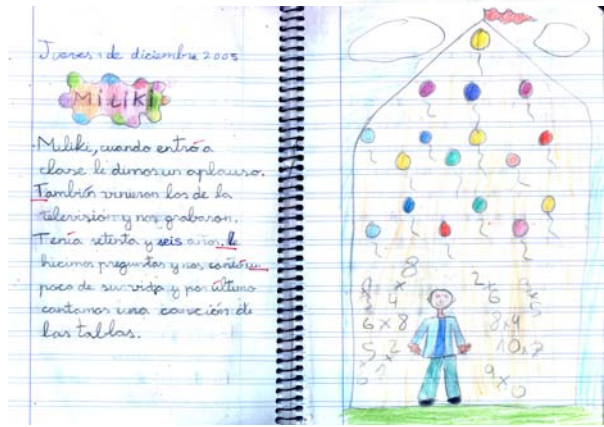 Jueves 1 de diciembre 2005
MILIKI
Miliki, cuando entró a
clase le dimos un aplauso.
También vinieron los de la
televisión y nos grabaron.
Tenía setenta y seis años, le
hicimos preguntas y nos contó un
poco de su vida y por último
cantamos una canción de
las tablas.
8
x
4
2
x
6
6 x 8
8 x 4
5 x 2
10 x 7
9
x
0